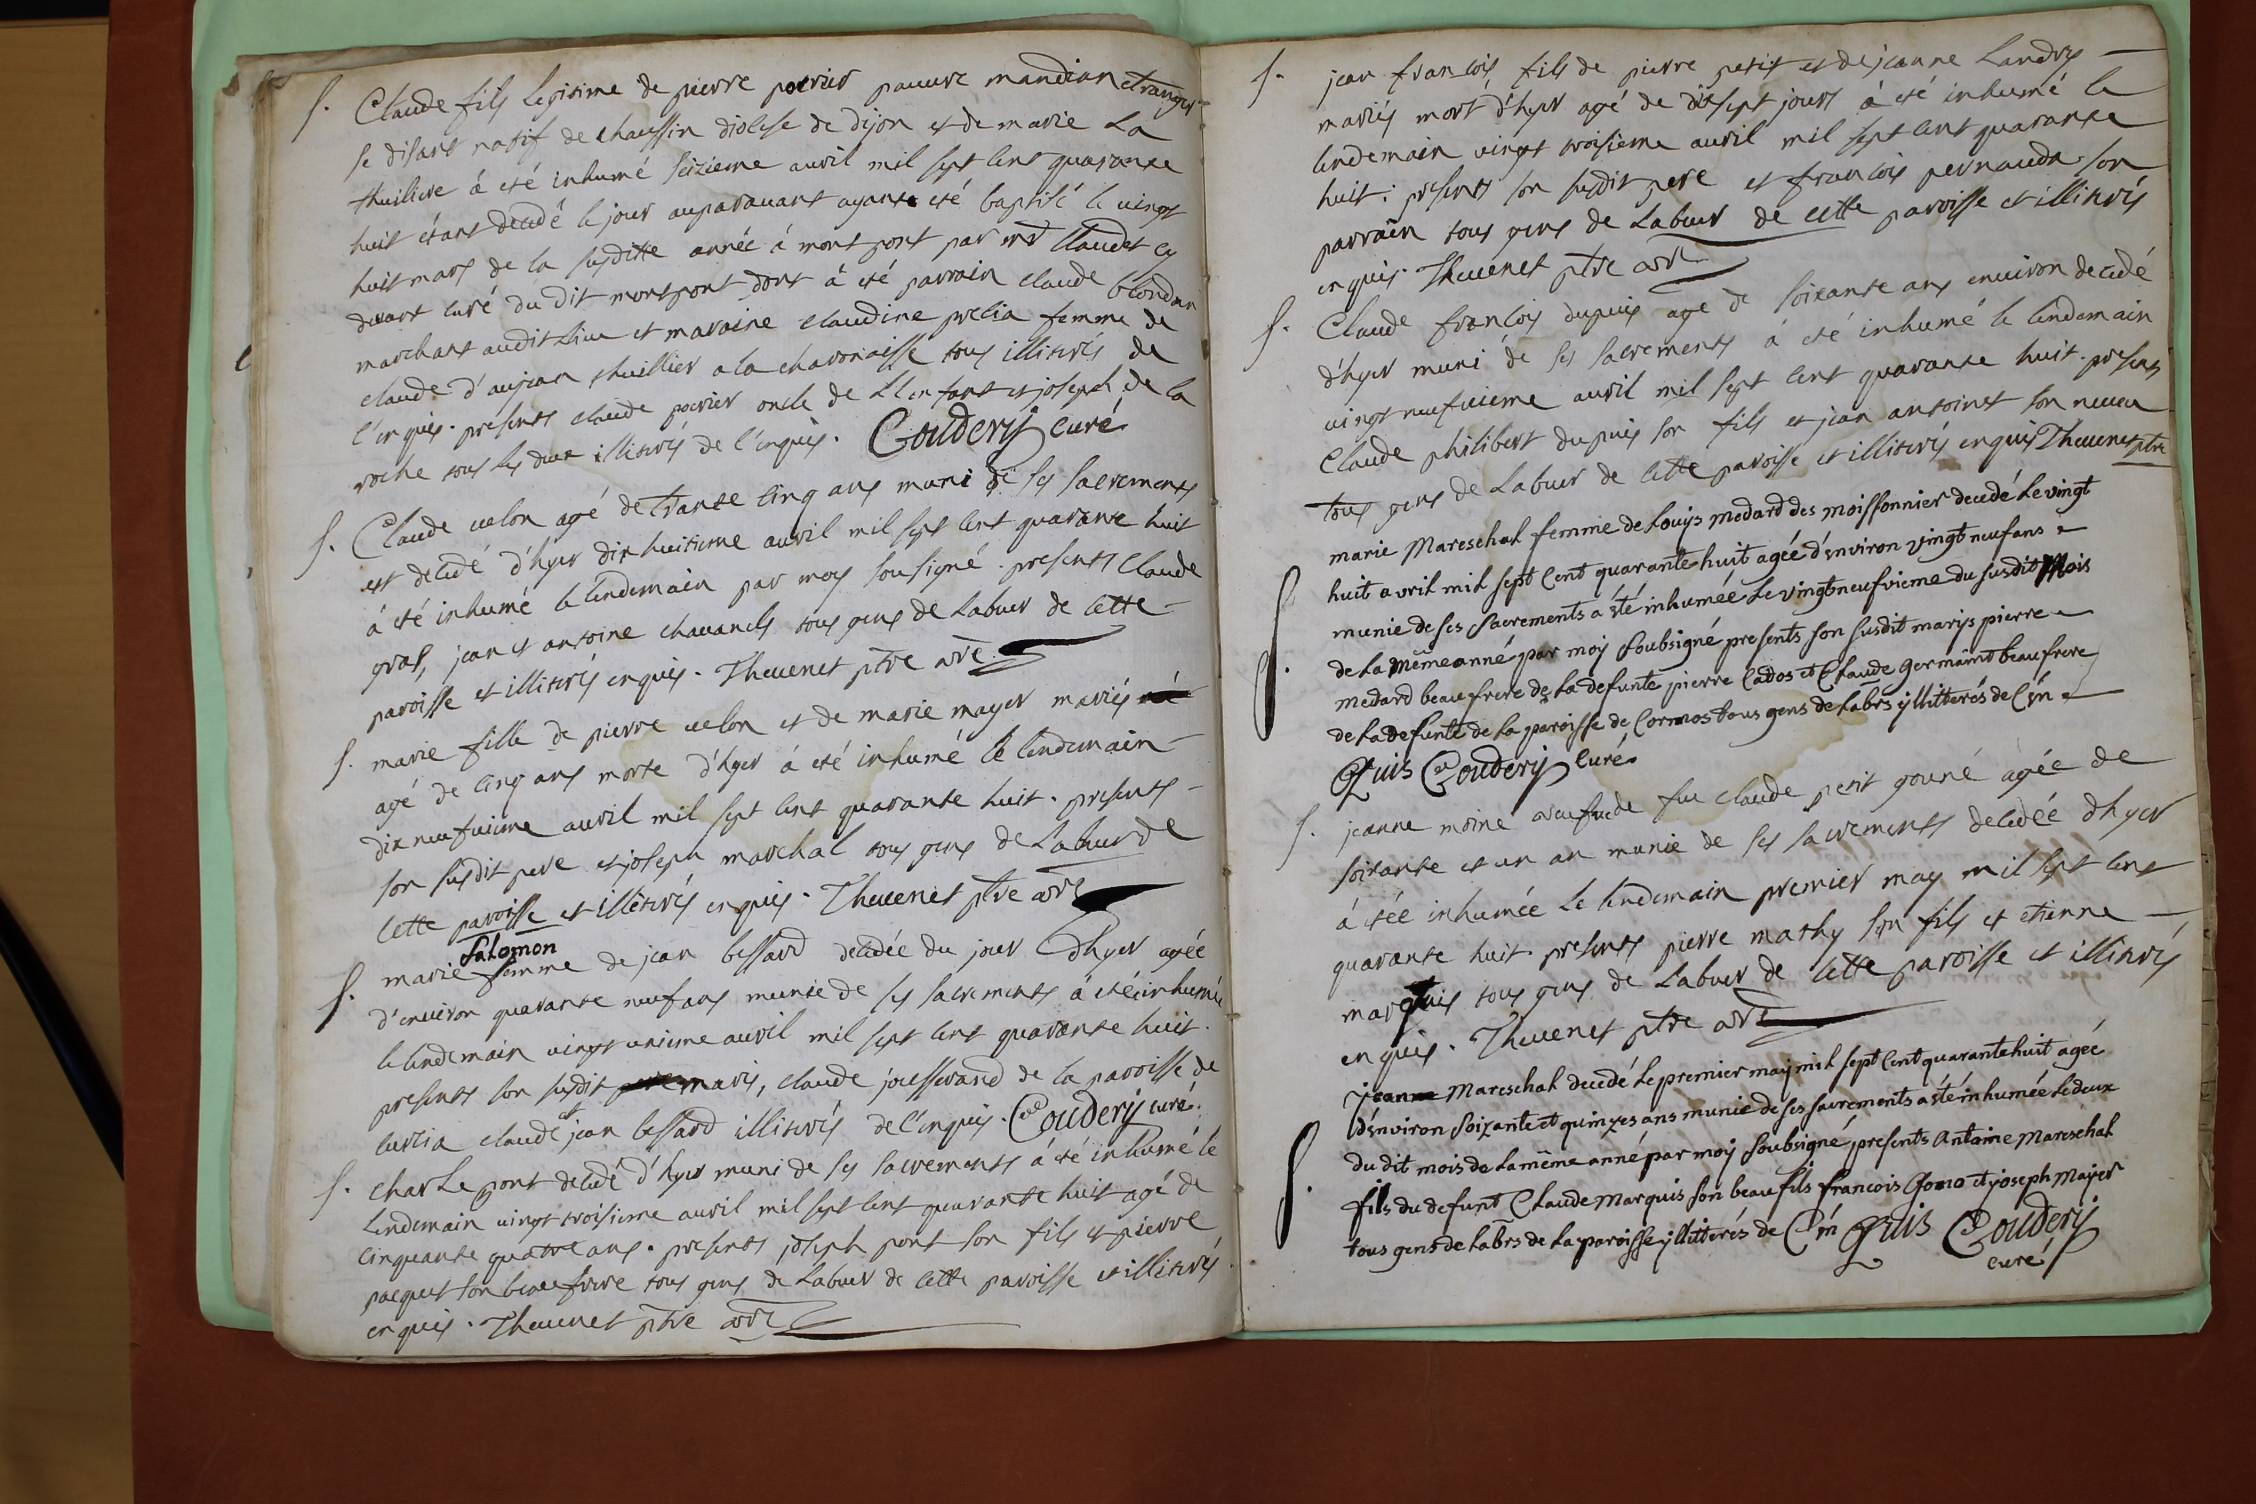 S. Claude fils legitime de pierre poirier pauure mandian etranger
se disant natif de chaussin diocese de dijon et de marie La
thuiliere á eté inhumé seizieme auril mil sept cent quarante
huit étant decedé le jour auparauant ayant eté baptisé le uingt
huit mars de la susditte année á montpont par mr Claudet cy
deuant curé du dit montpont dont á eté parrain claude blondan
marchant audit Lieu et maraine claudine prelia femme de
claude d'aujean thuillier a la chavonaisse tous illiterés de
l'enquis. presents claude poirier oncle de L'lenfant et joseph de la
roche tous les deux illiterés de l'enquis. Couderij curé
S. Claude uelon agé de trante cinq ans muni de ses sacrements
est decedé d'hyer dix huitieme auril mil sept cent quarante huit
á eté inhumé le lendemain par moy sousigné. presents Claude
gras, jean et antoine chauancls tous gens de Labeur de cette
paroisse et illiterés enquis. Theuenet ptre
S. marie fille de pierre uelon et de marie mayer mariés
agé de cinq ans morte d'hyer á eté inhumé le lendemain
dix neufuieme auril mil sept cent quarante huit. presents
son susdit pere et joseph marchal tous gens de Labeur de
cette paroisse et illiterés enquis. Theuenet ptre
Salomon
S. marie femme de jean bessard decedée du jour d'hyer agée
d'enuiron quarante neuf ans munie de ses sacrements á eté inhumée
le lendemain uingt unieme auril mil sept cent quarante huit.
presents son susdit maris, claude jousserand de la paroisse de
curtia claude et jean bessard illiterés de l'enquis. Couderij curé.
S. charle pont decedé d'hyer muni de ses sacrements á eté inhumé le
lendemain uingt troisieme auril mil sept cent quarante huit agé de
cinquante quatre ans. presents joseph pont son fils et pierre
pacquet son beaufrere tous gens de Labeur de cette paroisse et illiterés
enquis. Theuenet ptre
S. jean francois fils de pierre petit et de jeanne Landry
mariés mort d'hyer agé de dixsept jours á eté inhumé le
lendemain uingt troisieme auril mil sept cent quarante
huit: presents son susdit pere et francois pernauda son
parrain tous gens de Labeur de cette paroisse et illiterés
enquis. Theuenet ptre
S. Claude francois dupuis age de soixante ans enuiron decedé
d'hyer muni de ses sacrements á eté inhumé le lendemain
uingt neufuieme auril mil sept cent quarante huit. presents
Claude philibert dupuis son fils et jean antoinet son neueu
tous gens de Labeur de cette paroisse et illiterés enquis Theuenet ptre
marie Mareschal femme de Louys medard des moissonnier decedé Le vingt
huit avril mil sept cent quarante huit agée d'environ vingt neuf ans
munie de ses Sacrements a été inhumée Le vingt neufvieme du susdit mois
de La même anné par moy Soubsigné presents son susdit marys pierre
medard beaufrere de La defunte pierre Cados et Claude Germaint beaufrere
de La defunte de La paroisse de Cormos tous gens de Labrs yllitterés de l'en
Quis Couderij Curé
S. jeanne moine de feu claude petit agée de
soixante et un an munie de ses sacrements decedée d'hyer
á etée inhumée Le lendemain premier may mil sept cent
quarante huit presents pierre mathy son fils et etienne
marquis tous gens de Labeur de cette paroisse et illiterés
enquis. Theuenet ptre
jeanne Mareschal decedé Le premier may mil sept Cent quarante huit agée
d'environ Soixante et quinzes ans munie de ses sacrements a été inhumée Le deux
du dit mois de La même anné par moy Soubsigné, presents Antoine Mareschal
fils du defunt Claude Marquis son beau fils francois Gono et joseph Mayer
tous gens de Labrs de La paroisse yllitterés de l'en Quis Couderij
curé